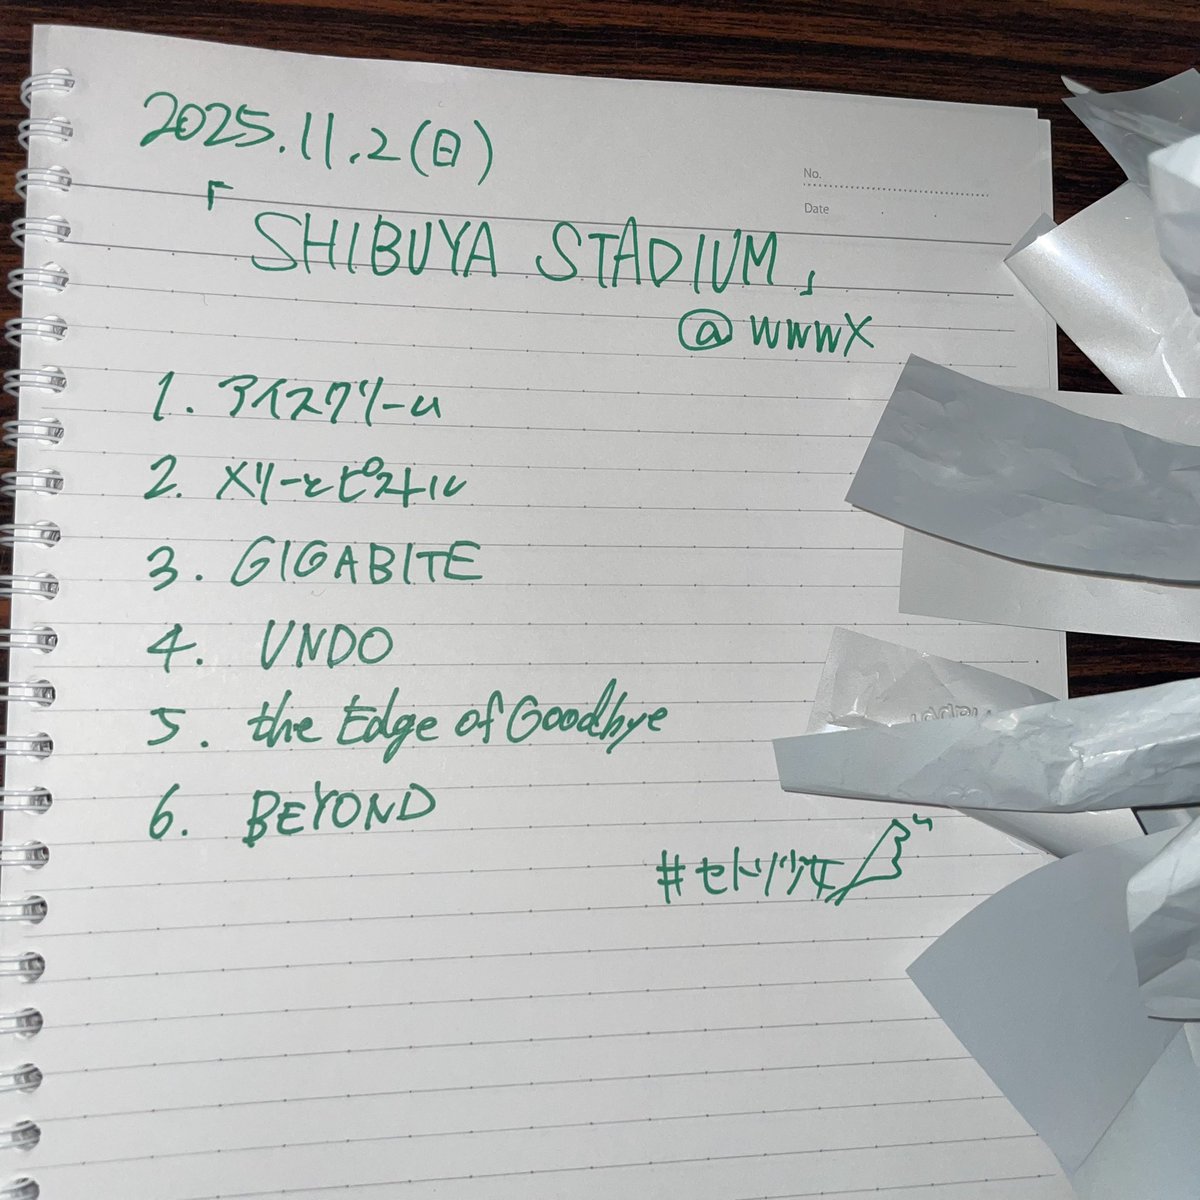 2025.11.2(日)
No.
Date
「SHIBUYA STADIUM」
@WWWX
1. アイスクリーム
2. メリーとピストル
3. GIGABITE
4. UNDO
5. the Edge of Goodbye
6. BEYOND
#セトリ少女